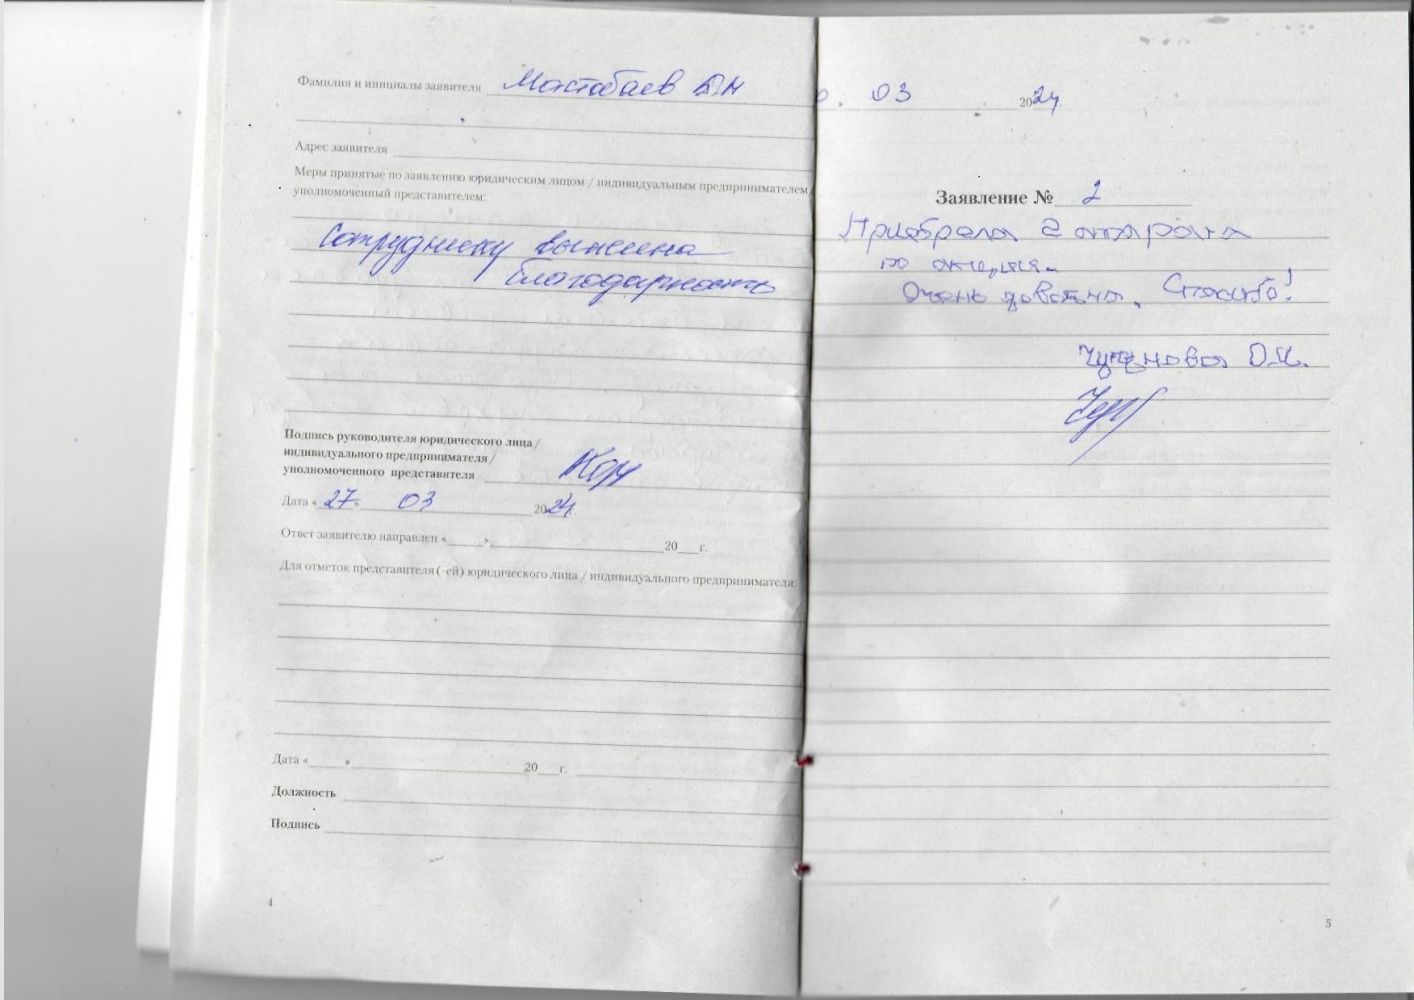 Фамилия и инициалы заявителя Мастабаев
Адрес заявителя
Меры принятые по заявлению юридическим лицом / индивидуальным предпринимателем/
уполномоченный представителем:
Сотруднику вынесена
благодарность
Подпись руководителя юридического лица/
индивидуального предпринимателя/
уполномоченного представителя
Дата « 27. 03 2024.
Ответ заявителю направлен «_____»_____ 20___г.
Для отметок представителя(-ей) юридического лица / индивидуального предпринимателя:
Дата «_____»_____ 20___г.
Должность
Подпись
4
. 03 2024
Заявление № 2
Приобрела 2
по
Очень Спасибо!
О.И.
5